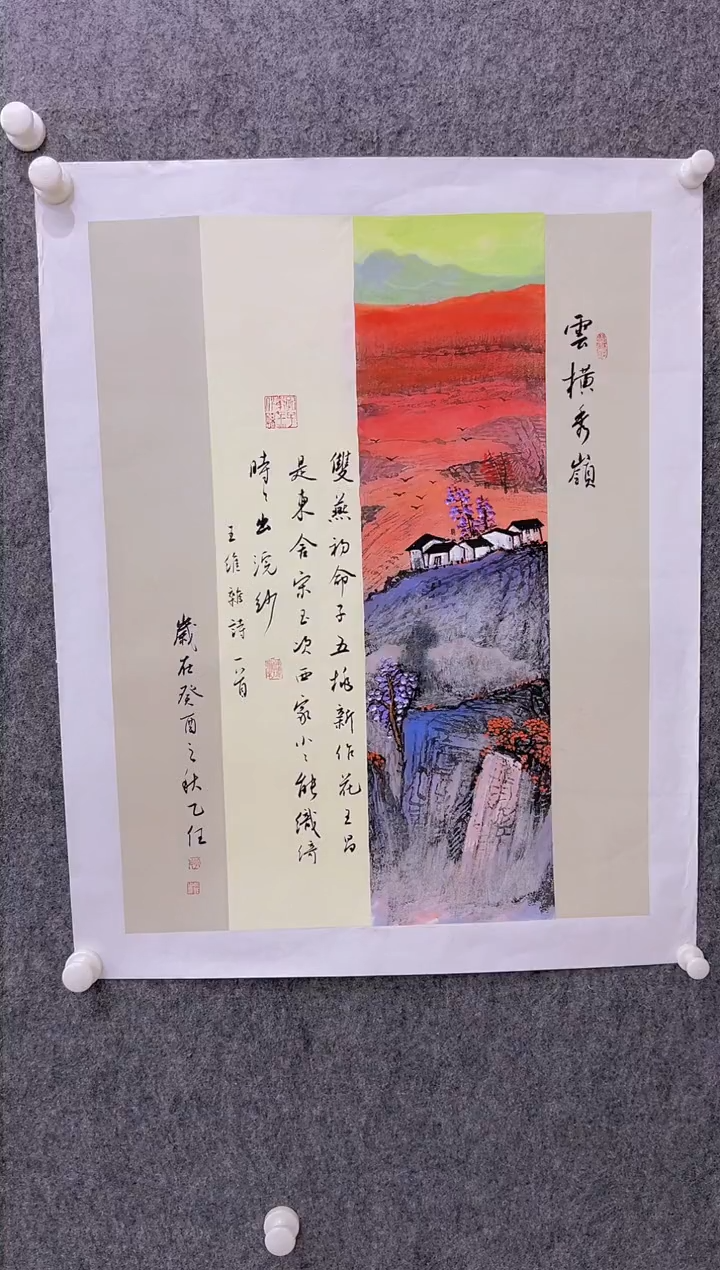 雲橫秀嶺
雙燕初命子五桃新作花王昌
是東舍宋玉次西家小〻能織綺
時〻出浣紗
王維雜詩一首
歲在癸酉之秋乙任